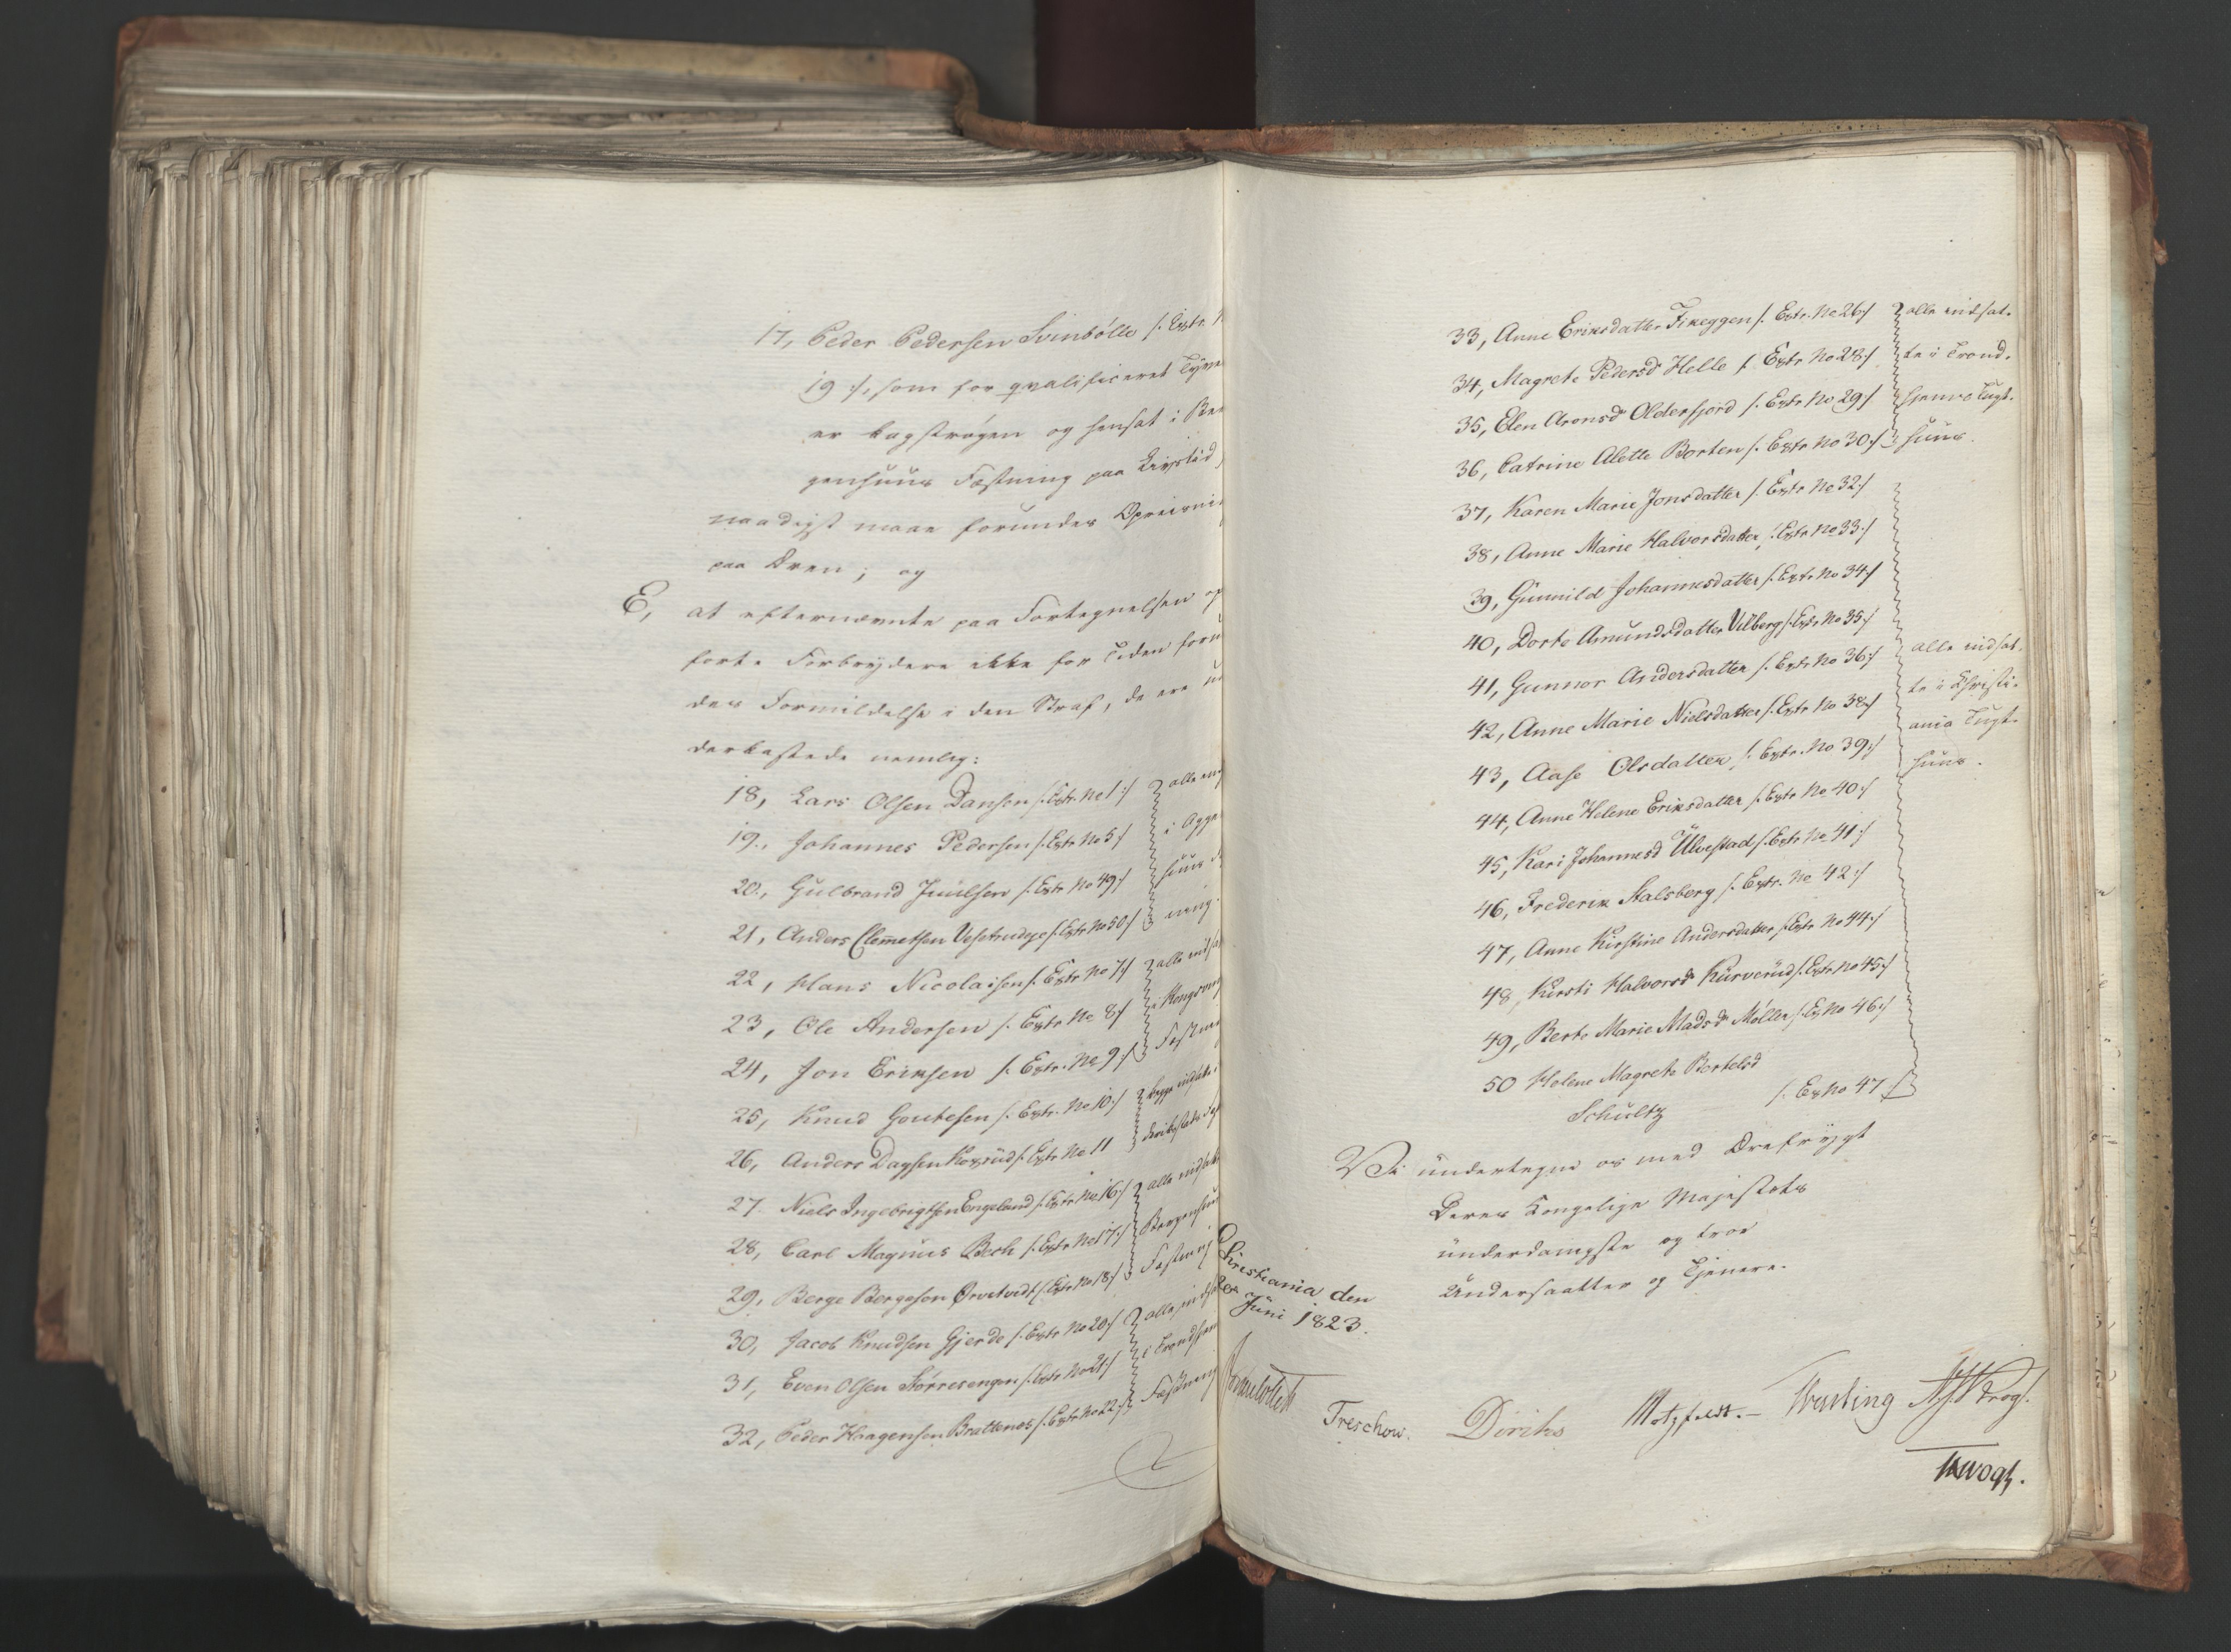 17, Peder Pedersen Svinbølle /: Extr. N
19 :/, som for qvalificeret Tyve
er kagstrøgen og hensat i Ber
genhuus Fæstning paa Livstid,
naadigst maae forundes Opreisni
paa Æren; og
E, at efternævnte paa Fortegnelsen op
førte Forbrydere ikke for Tiden forun
des Formildelse i den Straf, de ere un
derkastede nemlig:
18, Lars Olsen Dansen /: Extr. No 1 :/
19., Johannes Pedersen /: Extr No 5 :/
20., Gulbrand Juulsen /: Extr No 49 :/
21, Anders Clemetsen /: Extr No 50 :/
alle
i Agge
huus
ning.
22, Hans Nicolaisen /: Extr No 7 :/
23, Ole Andersen /: Extr No 8 :/
24, Jon Eriksen /: Extr. No 9 :/
alle indsa
i Kongsvin
Fæstni
25, Knud Goutesen /: Extr. No 10 :/
26, Anders Dagsen Kogrud /: Extr No 11
begge indsatte i
derikstads Fæ
27. Niels Ingebrigtsen Engeland /: Extr No 16 :/
28, Carl Magnus Bech /: Extr No 17 :/
29, Berge Bergeson Ørvetvidt /: Extr No 18 :/
alle indsatte
Bergenhuus
Fæstning
30, Jacob Knudsen Gjerde /: Extr No 20 :/
31, Even Olsen Størresengen /: Extr No 21 :/
32, Peder Haagensen Brattenes /: Extr No 22 :/
alle indsat
i Trondhjem
Fæstning
33, Anne Eriksdatter Fikeggen /: Extr. No 26 :/
34, Magrete Pedersd Helle /: Extr No 28 :/
35, Elen Aronsd Olderfjord /: Extr No 29 :/
36, Catrine Alette Borten /: Extr No 30 :/
alle indsat-
te i Trond-
hjems Tugt-
huus.
37, Karen Marie Jonsdatter /: Extr No 32 :/
38, Anne Marie Halvorsdatter /: Extr No 33 :/
39, Gunnild Johannesdatter /: Extr No 34 :/
40, Dorte Amundsdatter Vilberg /: Extr No 35 :/
41, Gunnor Andersdatter /: Extr No 36 :/
42, Anne Marie Nielsdatter /: Extr No 38 :/
43, Aase Olsdatter /: Extr. No 39 :/
44, Anne Helene Eriksdatter /: Extr No 40 :/
45, Kari Johannesd Ulvestad /: Extr No 41 :/
46, Frederik Stalsberg /: Extr. No 42 :/
47, Anne Kirstine Andersdatter /: Extr No 44 :/
48, Kirsti Halvorsd Kurverud /: Extr No 45 :/
49, Berte Marie Madsd Møller /: Ex No 46 :/
50 Helene Magrete Bertelsd
Schultz /: Ex No 47 :/
alle indsat-
te i Christi-
ania Tugt-
huus.
Vi undertegne os med Ærefrygt
Deres Kongelige Majestæts
underdanigste og troe
Undersaatter og Tjenere.
Christiania den
Juni 1823.
Treschow. Diriks Motzfeldt. –